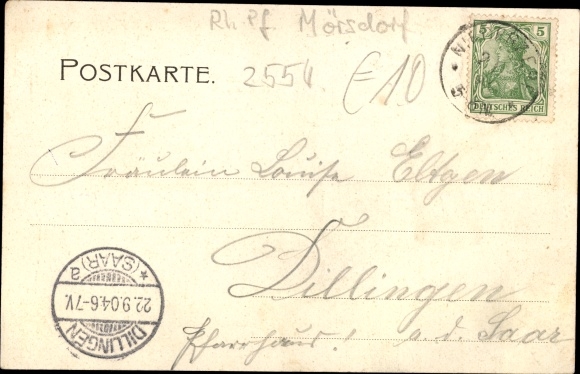 Rh. Pf Mörsdorf
POSTKARTE.
2554.
€10
5 5
DEUTSCHES REICH
Fräulein Louise Eltgen
Dillingen
a. d. Saar
Pfarrhaus!
DILLINGEN
22.9.04.6-7V.
* (SAAR) a